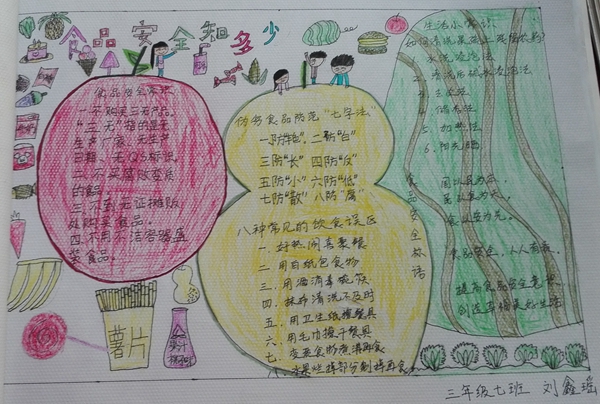 食品安全知多少
食品安全常识
一.不购买三无产品。
"三无"指的是无
生产厂家、无生产
日期、无QS标识。
二.不买腐败变质
的食品。
三.不到无证摊贩
处购买食品。
四.不用不洁容器盛
装食品。
伪劣食品防范"七字法"
一.防"艳" 二.防"白"
三.防"长" 四.防"反"
五.防"小" 六.防"低"
七.防"散" 八.防"腐"
八种常见的饮食误区
一.好热闹喜聚餐
二.用白纸包食物
三.用酒消毒碗筷
四.抹布清洗不及时
五.用卫生纸擦餐具
六.用毛巾擦干餐具
七.变质食物煮沸再食
八.水果烂掉部分削掉再食
生活小常识:
如何清洗果蔬上残留农药?
水洗浸泡法
3.去皮法
4.储存法
5.加热法
6.阳光晒
食品安全标语
国以民为本,
民以食为天,
食以安为先。
食品安全,人人有责。
创造幸福美好生活
薯片
果汁
三年级七班 刘鑫瑶